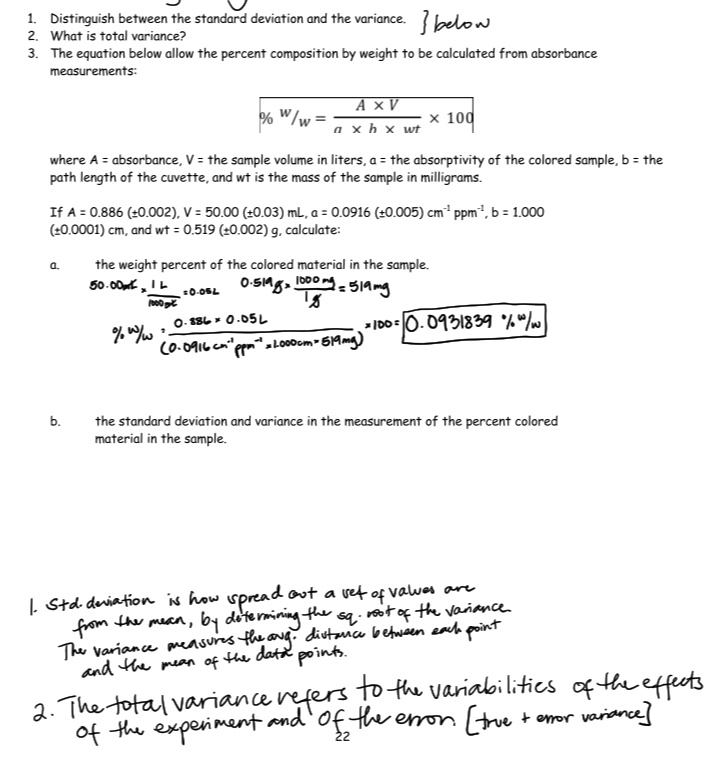 1. Distinguish between the standard deviation and the variance. } below
2. What is total variance?
3. The equation below allow the percent composition by weight to be calculated from absorbance
measurements:
% w/w = A × V / a × b × wt × 100
where A = absorbance, V = the sample volume in liters, a = the absorptivity of the colored sample, b = the
path length of the cuvette, and wt is the mass of the sample in milligrams.
If A = 0.886 (±0.002), V = 50.00 (±0.03) mL, a = 0.0916 (±0.005) cm⁻¹ ppm⁻¹, b = 1.000
(±0.0001) cm, and wt = 0.519 (±0.002) g, calculate:
a. the weight percent of the colored material in the sample.
50.00mL × 1 L / 1000 mL = 0.05L 0.519g × 1000 mg / 1g = 519mg
% w/w = 0.886 × 0.05L / (0.0916 cm⁻¹ ppm⁻¹ × 1.000cm × 519mg) × 100 = 0.0931839 % w/w
b. the standard deviation and variance in the measurement of the percent colored
material in the sample.
1. Std. deviation is how spread out a set of values are
from the mean, by determining the sq. root of the variance
The variance measures the avg. distance between each point
and the mean of the data points.
2. The total variance refers to the variabilities of the effects
of the experiment and of the error. [true + error variance]
22